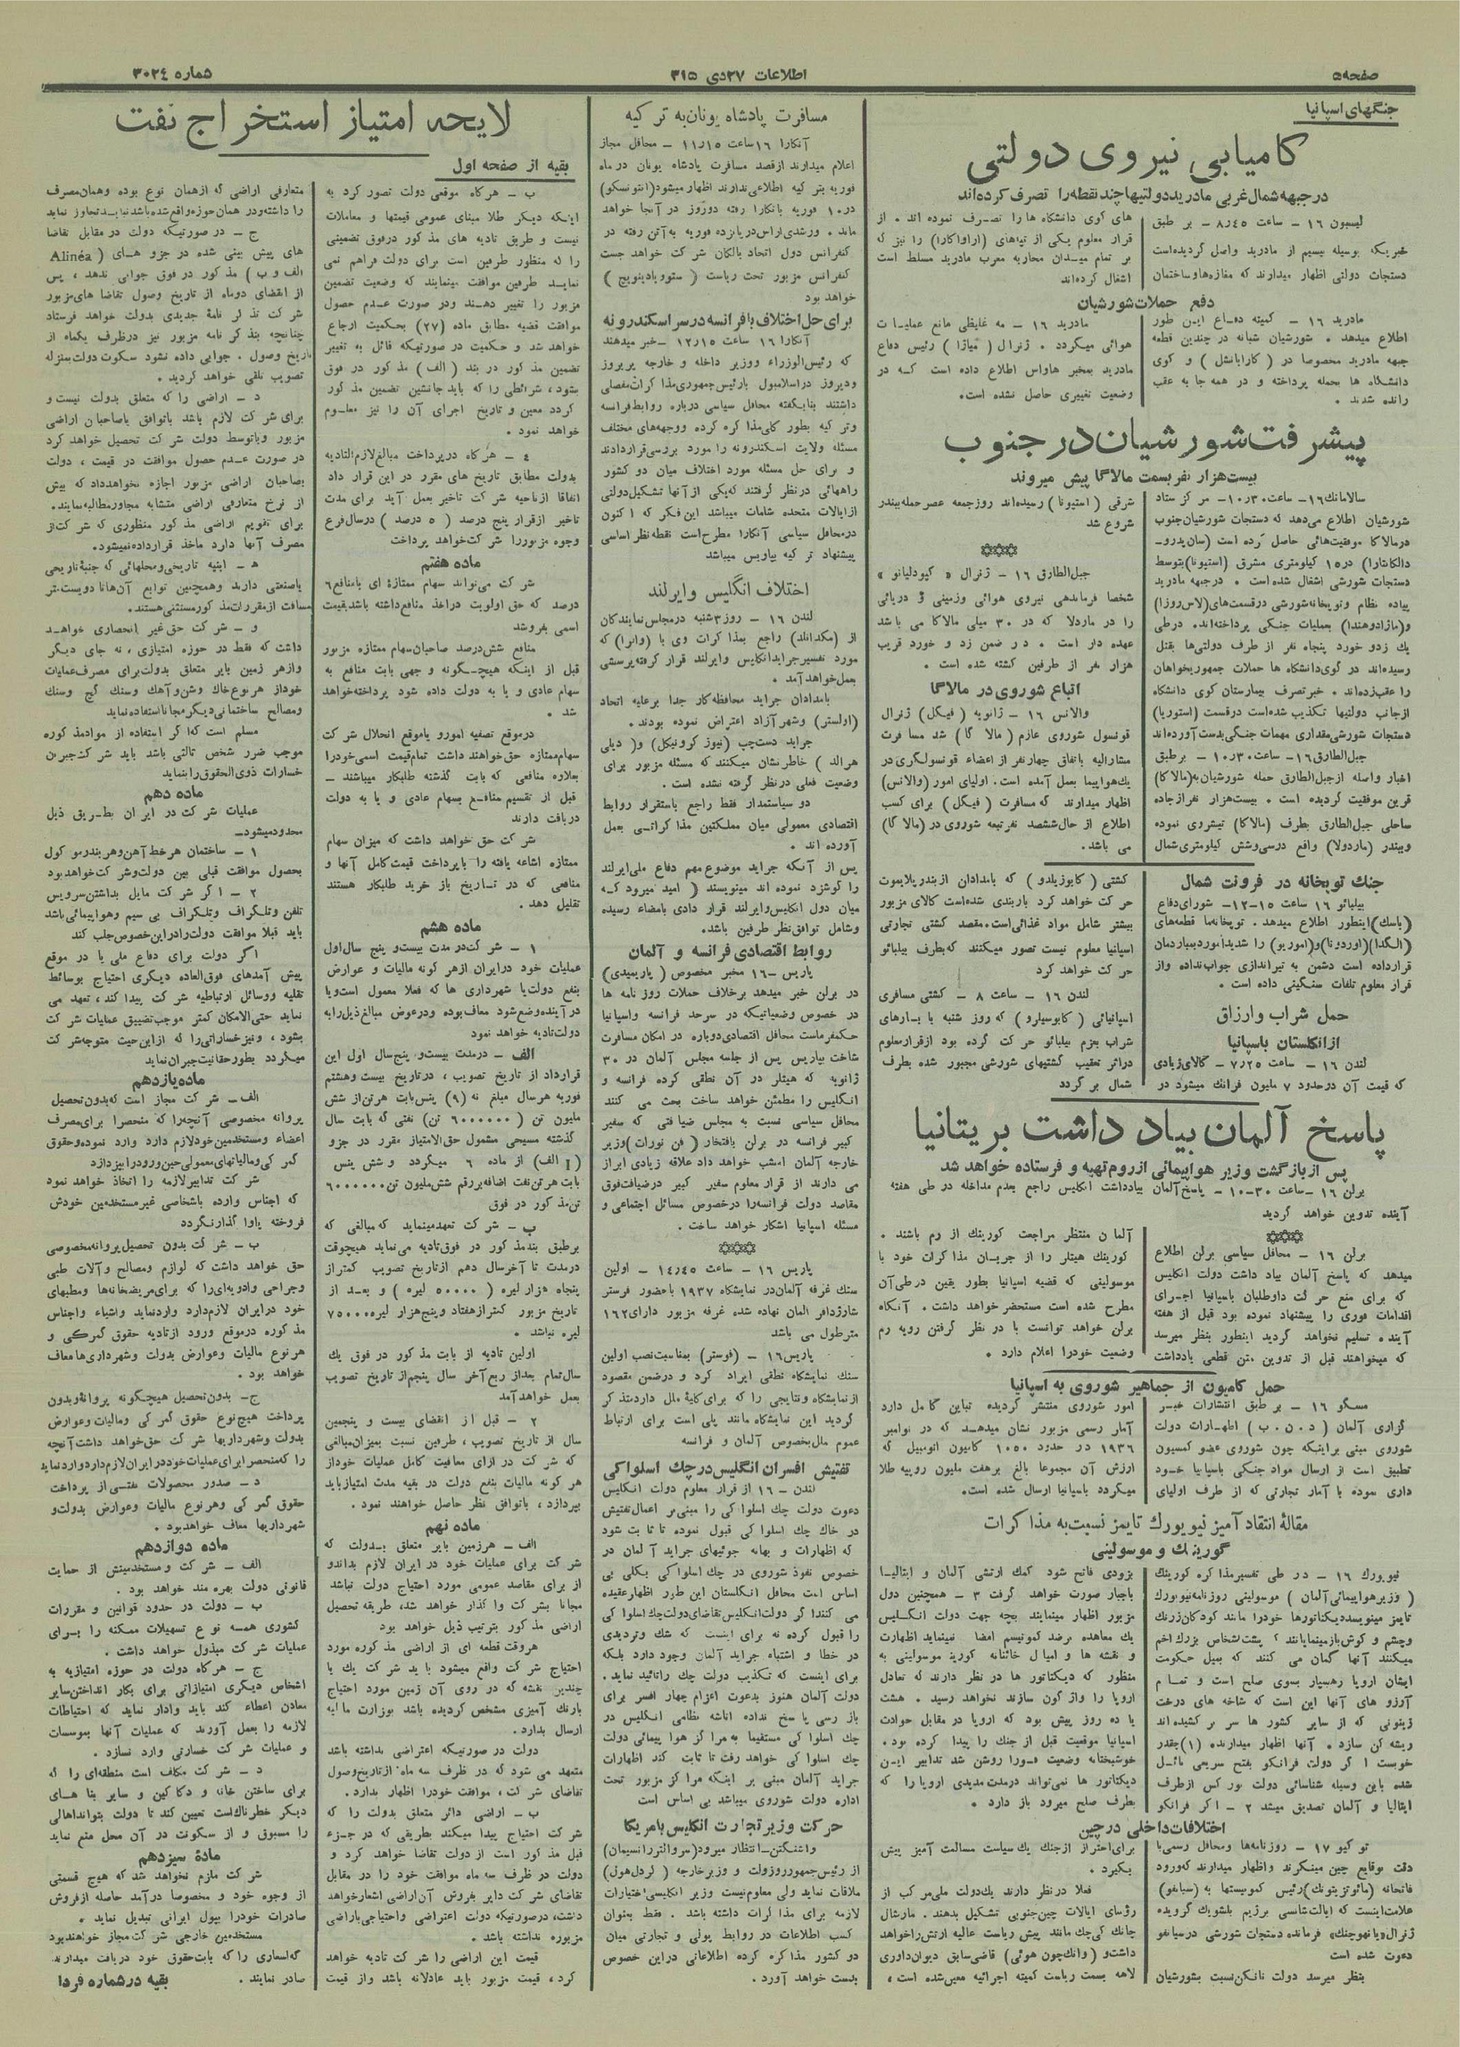 صفحه ۵
اطلاعات ۲۷ دی ۳۱۵
شماره ۳۰۲۴
جنگهای اسپانیا
کامیابی نیروی دولتی
در جبهه شمال غربی مادرید دولتیها چند نقطه را تصرف کرده‌اند
لیسبون ۱۶ - ساعت ۸٫۴۵ - بر طبق
خبریکه بوسیله بیسیم از مادرید واصل گردیده است
دستجات دولتی اظهار میدارند که مغازه‌ها و ساختمان
های کوی دانشگاه ها را تصرف نموده اند . از
قرار معلوم یکی از تپه‌های (اراواکارا) را نیز که
بر تمام میدان محاربه مغرب مادرید مسلط است
اشغال کرده‌اند
دفع حملات شورشیان
مادرید ۱۶ - کمیته دفاع این طور
اطلاع میدهد . شورشیان شبانه در چندین قطعه
جبهه مادرید مخصوصا در ( کارابانشل ) و کوی
دانشگاه ها بحمله پرداخته و در همه جا به عقب
رانده شدند .
مادرید ۱۶ - مه غلیظی مانع عملیات
هوائی میگردد . ژنرال ( میاژا ) رئیس دفاع
مادرید بمخبر هاواس اطلاع داده است که در
وضعیت تغییری حاصل نشده است .
پیشرفت شورشیان در جنوب
بیست هزار نفر بسمت مالاگا پیش میروند
سالامانک ۱۶ - ساعت ۱۰٫۳۰ - مرکز ستاد
شورشیان اطلاع میدهد که دستجات شورشیان جنوب
در مالاکا موفقیت‌هائی حاصل کرده است (سان پدرو-
دالکانتارا) در ۱۵ کیلومتری مشرق (استپونا) بتوسط
دستجات شورشی اشغال شده است . در جبهه مادرید
پیاده نظام و توپخانه شورشی در قسمت‌های (لاس روزا)
و (ماژادوهندا) بعملیات جنگی پرداخته‌اند . در طی
یک زدو خورد پنجاه نفر از طرف دولتی‌ها بقتل
رسیده‌اند در کوی دانشگاه ها حملات جمهوریخواهان
را عقب زده‌اند . خبر تصرف بیمارستان کوی دانشگاه
از جانب دولتیها تکذیب شده است در قسمت (استوریا)
دستجات شورشی مقداری مهمات جنگی بدست آورده‌اند
جبل الطارق ۱۶ - ساعت ۱۰٫۳۰ - بر طبق
اخبار واصله از جبل الطارق حمله شورشیان به (مالاکا)
قرین موفقیت گردیده است . بیست هزار نفر از جاده
ساحلی جبل الطارق بطرف (مالاکا) پیشروی نموده
و ببندر (ماردولا) واقع در سی و شش کیلومتری شمال
شرقی (استپونا) رسیده‌اند روز جمعه عصر حمله ببندر
شروع شد
جبل الطارق ۱۶ - ژنرال « کپودلیانو »
شخصا فرماندهی نیروی هوائی و زمینی و دریائی
را در ماردلا که در ۳۰ میلی مالاکا می باشد
عهده دار است . در ضمن زد و خورد قریب
هزار نفر از طرفین کشته شده است .
اتباع شوروی در مالاگا
والانس ۱۶ - ژانویه ( فیگل ) ژنرال
قونسول شوروی عازم ( مالا گا ) شد مسافرت
مشارالیه باتفاق چهار نفر از اعضاء قونسولگری در
یک هواپیما بعمل آمده است . اولیای امور (والانس)
اظهار میدارند که مسافرت ( فیگل ) برای کسب
اطلاع از حال ششصد نفر تبعه شوروی در (مالا گا)
می باشد .
جنك توپخانه در فرونت شمال
بیلبائو ۱۶ ساعت ۱۲-۱۵ - شورای دفاع
(باسك) اینطور اطلاع میدهد . توپخانه ما قطعه‌های
(الگدا) (اوردونا) و (اموریو) را شدیدا مورد بمباردمان
قرار داده است دشمن به تیراندازی جواب نداده و از
قرار معلوم تلفات سنگینی داده است .
حمل شراب و ارزاق
از انکلستان باسپانیا
لندن ۱۶ - ساعت ۷٫۲۵ - کالای زیادی
که قیمت آن در حدود ۷ میلیون فرانك میشود در
کشتی ( کابوزیلدو ) که بامدادان از بندر پلایموت
حرکت خواهد کرد باربندی شده است کالای مزبور
بیشتر شامل مواد غذائی است . مقصد کشتی تجارتی
اسپانیا معلوم نیست تصور میکنند که بطرف بیلبائو
حرکت خواهد کرد
لندن ۱۶ - ساعت ۸ - کشتی مسافری
اسپانیائی ( کابوسیلرو ) که روز شنبه با بارهای
شراب بعزم بیلبائو حرکت کرده بود از قرار معلوم
در اثر تعقیب کشتیهای شورشی مجبور شده بطرف
شمال بر گردد
پاسخ آلمان بیاد داشت بریتانیا
پس از باز گشت وزیر هواپیمائی از روم تهیه و فرستاده خواهد شد
برلن ۱۶ - ساعت ۱۰-۳۰ - پاسخ آلمان بیادداشت انکلیس راجع بعدم مداخله در طی هفته
آینده تدوین خواهد گردید
برلن ۱۶ - محافل سیاسی برلن اطلاع
میدهد که پاسخ آلمان بیاد داشت دولت انکلیس
که برای منع حرکت داوطلبان باسپانیا اجرای
اقدامات فوری را پیشنهاد نموده بود قبل از هفته
آینده تسلیم نخواهد گردید اینطور بنظر میرسد
که میخواهند قبل از تدوین متن قطعی یادداشت
آلمان منتظر مراجعت کورینك از رم باشند .
کورینك هیتلر را از جریان مذاکرات خود با
موسولینی که قضیه اسپانیا بطور یقین در طی آن
مطرح شده است مستحضر خواهد داشت . آنکاه
برلن خواهد توانست با در نظر گرفتن رویه رم
وضعیت خود را اعلام دارد .
حمل کامیون از جماهیر شوروی به اسپانیا
مسکو ۱۶ - بر طبق انتشارات خبر
گزاری آلمان ( د . ن . ب ) اظهارات دولت
شوروی مبنی براینکه چون شوروی عضو کمسیون
تطبیق است از ارسال مواد جنگی باسپانیا خود
داری نموده با آمار تجارتی که از طرف اولیای
امور شوروی منتشر گردیده تباین کامل دارد
آمار رسمی مزبور نشان میدهد که در نوامبر
۱۹۳۶ در حدود ۱۰۵۰ کامیون اتومبیل که
ارزش آن مجموعا بالغ بر هفت ملیون روپیه طلا
میگردد باسپانیا ارسال شده است .
مقالهٔ انتقاد آمیز نیویورك تایمز نسبت به مذاکرات
گورینك و موسولینی
نیویورك ۱۶ - در طی تفسیر مذاکره کورینك
( وزیر هواپیمائی آلمان ) موسولینی روزنامه نیویورك
تایمز مینویسد دیکتاتورها خود را مانند کودکان زرنك
میکنند آنها گمان می کنند که بمیل حکومت
ایشان اروپا رهسپار بسوی صلح است و تمام
آرزو های آنها این است که شاخه های درخت
زیتونی که از سایر کشور ها سر بر کشیده اند
ریشه کن سازد . آنها اظهار میدارند (۱) چقدر
خوبست اگر دولت فرانکو بفتح سریعی نائل
ایتالیا و آلمان تصدیق میشد ۲ - اکر فرانکو
بزودی فاتح شود کمك ارتشی آلمان و ایتالیا
باجبار صورت خواهد گرفت ۳ - همچنین دول
مزبور اظهار مینمایند بچه جهت دولت انکلیس
یك معاهده بر ضد کمونیسم امضا نمینماید اظهارات
و نقشه ها و امیال خائنانه کورینك موسولینی به
منظور که دیکتاتور ها در نظر دارند که تعادل
اروپا را واژگون سازند نخواهد رسید . هشت
یا ده روز پیش بود که اروپا در مقابل حوادث
اسپانیا موقعیت قبل از جنك را پیدا کرده بود .
خوشبختانه وضعیت فورا روشن شد تدابیر این
دیکتاتور ها نمی‌تواند در مدت مدیدی اروپا را که
بطرف صلح میرود باز دارد .
اختلافات داخلی در چین
توکیو ۱۷ - روزنامه‌ها و محافل رسمی با
دقت بوقایع چین مینگرند و اظهار میدارند که ورود
علامت اینست که ایالت شانسی برژیم بلشویك گرویده
دعوت شده است
بنظر میرسد دولت نانکن نسبت بشورشیان
برای احتراز از جنك یك سیاست مسالمت آمیز پیش
بگیرد .
فعلا در نظر دارند یك دولت ملی مرکب از
رؤسای ایالات چین جنوبی تشکیل بدهند . مارشال
چانك کی چك مانند پیش ریاست عالیه ارتش را خواهد
داشت و ( وانك چون هوئی ) قاضی سابق دیوان داوری
لاهه بسمت ریاست کمیته اجرائیه معین شده است .
مسافرت پادشاه یونان به ترکیه
آنکارا ۱۶ ساعت ۱۱٫۱۵ - محافل مجاز
اعلام میدارند از قصد مسافرت پادشاه یونان در ماه
فوریه بترکیه اطلاعی ندارند اظهار میشود (انتونسکو)
در ۱۰ فوریه بانکارا رفته دو روز در آنجا خواهد
ماند . و رشدی اراس در پانزده فوریه به آتن رفته در
کنفرانس دول اتحاد بالکان شرکت خواهد جست
کنفرانس مزبور تحت ریاست ( ستویادینویچ )
خواهد بود
برای حل اختلاف با فرانسه در سر اسکندرونه
آنکارا ۱۶ ساعت ۱۲٫۱۵ - خبر میدهند
که رئیس الوزراء و وزیر داخله و خارجه پریروز
و دیروز در اسلامبول با رئیس جمهوری مذاکرات مفصلی
داشتند بنابگفته محافل سیاسی درباره روابط فرانسه
و ترکیه بطور کلی مذاکره کرده و وجهه‌های مختلف
مسئله ولایت اسکندرونه را مورد بررسی قرار دادند
و برای حل مسئله مورد اختلاف میان دو کشور
راههائی در نظر گرفتند که یکی از آنها تشکیل دولتی
از ایالات متحده شامات میباشد این فکر که اکنون
در محافل سیاسی آنکارا مطرح است نقطه نظر اساسی
پیشنهاد ترکیه بپاریس میباشد
اختلاف انگلیس و ایرلند
لندن ۱۶ - روز ۳شنبه در مجلس نمایندکان
از (مکدانلد) راجع بمذاکرات وی با (والرا) که
مورد تفسیر جراید انکلیس و ایرلند قرار گرفته پرسشی
بعمل خواهد آمد .
بامدادان جراید محافظه‌کار جدا بر علیه اتحاد
(اولستر) و شهر آزاد اعتراض نموده بودند .
جراید دست‌چپ (نیوز کرونیکل) و (دیلی
هرالد ) خاطر نشان میکنند که مسئله مزبور برای
وضعیت فعلی در نظر گرفته نشده است .
دو سیاستمدار فقط راجع باستقرار روابط
اقتصادی معمولی میان مملکتین مذاکراتی بعمل
آورده اند .
پس از آنکه جراید موضوع مهم دفاع ملی ایرلند
را گوشزد نموده اند مینویسند ( امید میرود که
میان دول انکلیس و ایرلند قرار دادی بامضاء رسیده
و شامل توافق نظر طرفین باشد .
روابط اقتصادی فرانسه و آلمان
پاریس - ۱۶ مخبر مخصوص ( پاریمیدی )
در برلن خبر میدهد برخلاف حملات روزنامه ها
در خصوص وضعیاتیکه در سرحد فرانسه و اسپانیا
حکمفرماست محافل اقتصادی دوباره در امکان مسافرت
شاخت بپاریس پس از جلسه مجلس آلمان در ۳۰
ژانویه که هیتلر در آن نطقی کرده فرانسه و
انکلیس را مطمئن خواهد ساخت بحث می کنند
محافل سیاسی نسبت به مجلس ضیافتی که سفیر
کبیر فرانسه در برلن بافتخار ( فن نورات ) وزیر
خارجه آلمان امشب خواهد داد علاقه زیادی ابراز
می دارند از قرار معلوم سفیر کبیر در ضیافت فوق
مقاصد دولت فرانسه را در خصوص مسائل اجتماعی و
مسئله اسپانیا اشکار خواهد ساخت .
پاریس ۱۶ - ساعت ۱۴٫۴۵ - اولین
سنك غرفه آلمان در نمایشکاه ۱۹۳۷ با حضور فرستر
شارژدافر المان نهاده شده غرفه مزبور دارای ۱۶۲
متر طول می باشد
پاریس ۱۶ - (فوستر) بمناسبت نصب اولین
سنك نمایشکاه نطقی ایراد کرد و در ضمن مقصود
از نمایشکاه و نتایجی را که برای کلیهٔ ملل دارد متذکر
گردید این نمایشکاه مانند پلی است برای ارتباط
عموم ملل بخصوص آلمان و فرانسه
تفتیش افسران انگلیس در چك اسلواکی
لندن - ۱۶ از قرار معلوم دولت انکلیس
دعوت دولت چك اسلواکی را مبنی بر اعمال تفتیش
در خاك چك اسلواکی قبول نموده تا ثابت شود
که اظهارات و بهانه جوئیهای جراید آلمان در
خصوص نفوذ شوروی در چك اسلواکی بکلی بی
اساس است محافل انکلستان این طور اظهار عقیده
می کنند اگر دولت انکلیس تقاضای دولت چك اسلواکی
را قبول کرده نه برای اینست که شك و تردیدی
در خطا و اشتباه جراید آلمان وجود دارد بلکه
برای اینست که تکذیب دولت چك را تائید نماید .
دولت آلمان هنوز بدعوت اعزام چهار افسر برای
باز رسی پاسخ نداده اتاشه نظامی انکلیس در
چك اسلواکی مستقیما به مراکز هوا پیمائی دولت
چك اسلواکی خواهد رفت تا ثابت کند اظهارات
جراید آلمان مبنی بر اینکه مراکز مزبور تحت
اداره دولت شوروی میباشد بی اساس است
حرکت وزیر تجارت انکلیس بامریکا
واشنگتن - انتظار میرود (سر والتر رانسیمان)
از رئیس جمهور روزولت و وزیر خارجه ( کردل هول)
ملاقات نماید ولی معلوم نیست وزیر انکلیسی اختیارات
لازمه برای مذاکرات داشته باشد . فقط بعنوان
کسب اطلاعات در روابط پولی و تجارتی میان
دو کشور مذاکره کرده اطلاعاتی در این خصوص
بدست خواهد آورد .
لایحه امتیاز استخراج نفت
بقیه از صفحه اول
ب - هرگاه موقعی دولت تصور کرد به
اینکه دیکر طلا مبنای عمومی قیمتها و معاملات
نیست و طریق تادیه های مذکور در فوق تضمینی
را که منظور طرفین است برای دولت فراهم نمی
نماید طرفین موافقت مینمایند که وضعیت تضمین
مزبور را تغییر دهند و در صورت عدم حصول
موافقت قضیه مطابق ماده (۲۷) بحکمیت ارجاع
خواهد شد و حکمیت در صورتیکه قائل به تغییر
تضمین مذکور در بند (الف) مذکور در فوق
بشود ، شرائطی را که باید جانشین تضمین مذکور
گردد معین و تاریخ اجرای آن را نیز معلوم
خواهد نمود .
٤ - هرگاه در پرداخت مبالغ لازم التادیه
بدولت مطابق تاریخ های مقرر در این قرار داد
اتفاقا از ناحیه شرکت تاخیر بعمل آید برای مدت
تاخیر از قرار پنج درصد ( ۵ درصد ) در سال فرع
وجوه مزبور را شرکت خواهد پرداخت
ماده هفتم
شرکت می‌تواند سهام ممتازه ای بامنافع ۶
درصد که حق اولویت در اخذ منافع داشته باشد بقیمت
اسمی بفروشد
منافع شش درصد صاحبان سهام ممتازه مزبور
قبل از اینکه هیچگونه و جهی بابت منافع به
سهام عادی و یا به دولت داده شود پرداخته خواهد
شد .
در موقع تصفیه امور و یا موقع انحلال شرکت
سهام ممتازه حق خواهند داشت تمام قیمت اسمی خود را
بعلاوه منافعی که بابت گذشته طلبکار میباشند -
قبل از تقسیم منافع بسهام عادی و یا به دولت
دریافت دارند
شرکت حق خواهد داشت که میزان سهام
ممتازه اشاعه یافته را با پرداخت قیمت کامل آنها و
منافعی که در تاریخ باز خرید طلبکار هستند
تقلیل دهد .
ماده هشتم
۱ - شرکت در مدت بیست و پنج سال اول
عملیات خود در ایران از هر گونه مالیات و عوارض
بنفع دولت یا شهرداری ها که فعلا معمول است و یا
در آینده وضع شود معاف بوده و در عوض مبالغ ذیل را به
دولت تادیه خواهد نمود
الف - در مدت بیست و پنج سال اول این
قرارداد از تاریخ تصویب ، در تاریخ بیست و هشتم
فوریه هر سال مبلغ نه (۹) پنس بابت هر تن از شش
ملیون تن ( ۶۰۰۰۰۰۰ تن) نفتی که بابت سال
گذشته مسیحی مشمول حق الامتیاز مقرر در جزو
( I الف) از ماده ۶ میگردد و شش پنس
بابت هر تن نفت اضافه بر رقم شش ملیون تن ۶۰۰۰۰۰۰
تن مذکور در فوق
ب - شرکت تعهد مینماید که مبالغی که
بر طبق بند مذکور در فوق تادیه می نماید هیچوقت
در مدت تا آخر سال دهم از تاریخ تصویب کمتر از
پنجاه هزار لیره ( ۵۰۰۰۰ لیره ) و بعد از
تاریخ مزبور کمتر از هفتاد و پنج هزار لیره ۷۵۰۰۰
لیره نباشد .
اولین تادیه از بابت مذکور در فوق یك
سال تمام بعد از ربع آخر سال پنجم از تاریخ تصویب
بعمل خواهد آمد
۲ - قبل از انقضای بیست و پنجمین
سال از تاریخ تصویب ، طرفین نسبت بمیزان مبالغی
که شرکت در ازای معافیت کامل عملیات خود از
هر گونه مالیات بنفع دولت در بقیه مدت امتیاز باید
بپردازد ، باتوافق نظر حاصل خواهند نمود .
ماده نهم
الف - هر زمین بایر متعلق بدولت که
شرکت برای عملیات خود در ایران لازم بداند و
از برای مقاصد عمومی مورد احتیاج دولت نباشد
مجانا بشرکت واگذار خواهد شد ، طریقه تحصیل
اراضی مذکور بترتیب ذیل خواهد بود
هر وقت قطعه ای از اراضی مذکوره مورد
احتیاج شرکت واقع میشود باید شرکت یك یا
چندین نقشه که در روی آن زمین مورد احتیاج
با رنك آمیزی مشخص گردیده باشد بوزارت مالیه
ارسال بدارد .
دولت در صورتیکه اعتراضی نداشته باشد
متعهد می شود که در ظرف سه ماه از تاریخ وصول
تقاضای شرکت ، موافقت خود را اظهار بدارد .
ب - اراضی دائر متعلق بدولت را که
شرکت احتیاج پیدا میکند بطریقی که در جزء
قبل مذکور است از دولت تقاضا خواهد کرد و
دولت در ظرف سه ماه موافقت خود را در مقابل
تقاضای شرکت دایر بفروش آن اراضی اشعار خواهد
داشت ، در صورتیکه دولت اعتراضی و احتیاجی باراضی
مزبوره نداشته باشد .
قیمت این اراضی را شرکت تادیه خواهد
کرد ، قیمت مزبور باید عادلانه باشد و از قیمت
متعارفی اراضی که از همان نوع بوده و همان مصرف
را داشته و در همان حوزه واقع شده باشد نباید تجاوز نماید
ج - در صورتیکه دولت در مقابل تقاضا
های پیش بینی شده در جزو های ( Alinéa
الف و ب ) مذکور در فوق جوابی ندهد ، پس
از انقضای دو ماه از تاریخ وصول تقاضا های مزبور
شرکت تذکر نامهٔ جدیدی بدولت خواهد فرستاد
چنانچه بتذکر نامه مزبور نیز در ظرف یکماه از
تاریخ وصول . جوابی داده نشود سکوت دولت بمنزله
تصویب تلقی خواهد گردید .
د - اراضی را که متعلق بدولت نیست و
برای شرکت لازم باشد باتوافق باصاحبان اراضی
مزبور و یا بتوسط دولت شرکت تحصیل خواهد کرد
در صورت عدم حصول موافقت در قیمت ، دولت
بصاحبان اراضی مزبور اجازه نخواهد داد که بیش
از نرخ متعارفی اراضی متشابه مجاور مطالبه نمایند .
برای تقویم اراضی مذکور منظوری که شرکت از
مصرف آنها دارد ماخذ قرار داده نمیشود .
ه - ابنیه تاریخی و محلهائی که جنبهٔ تاریخی
یا صنعتی دارند و همچنین توابع آن ها تا دویست متر
مسافت از مقررات مذکور مستثنی هستند .
و - شرکت حق غیر انحصاری خواهد
داشت که فقط در حوزه امتیازی ، نه جای دیگر
و از هر زمین بایر متعلق بدولت برای مصرف عملیات
خود از هر نوع خاك و شن و آهك و سنك گچ و سنك
و مصالح ساختمانی دیگر مجانا استفاده نماید
مسلم است که اگر استفاده از مواد مذکوره
موجب ضرر شخص ثالثی باشد باید شرکت جبران
خسارات ذوی الحقوق را بنماید
ماده دهم
عملیات شرکت در ایران بطریق ذیل
محدود میشود -
۱ - ساختمان هر خط آهن و هر بندر موکول
بحصول موافقت قبلی بین دولت و شرکت خواهد بود
۲ - اگر شرکت مایل بداشتن سرویس
تلفن و تلگراف و تلگراف بی سیم و هواپیمائی باشد
باید قبلا موافقت دولت را در این خصوص جلب کند
اگر دولت برای دفاع ملی یا در موقع
پیش آمدهای فوق‌العاده دیگری احتیاج بوسائط
نقلیه و وسائل ارتباطیه شرکت پیدا کند ، تعهد می
نماید حتی‌الامکان کمتر موجب تضییق عملیات شرکت
بشود ، و نیز خساراتی را که از این حیث متوجه شرکت
میگردد بطور حقانیت جبران نماید
ماده یازدهم
الف - شرکت مجاز است که بدون تحصیل
پروانه مخصوصی آنچه را که منحصرا برای مصرف
اعضاء و مستخدمین خود لازم دارد وارد نموده و حقوق
گمرکی و مالیاتهای معمولی حین ورود را بپردازد
شرکت تدابیر لازمه را اتخاذ خواهد نمود
که اجناس وارده باشخاصی غیر مستخدمین خودش
فروخته یا واگذار نگردد
ب - شرکت بدون تحصیل پروانه مخصوصی
حق خواهد داشت که لوازم و مصالح و آلات طبی
و جراحی و ادویه‌ای را که برای مریضخانه‌ها و مطبهای
خود در ایران لازم دارد وارد نماید و اشیاء و اجناس
مذکوره در موقع ورود از تادیه حقوق گمرکی و
هر نوع مالیات و عوارض بدولت و شهرداری ها معاف
خواهد بود .
ج - بدون تحصیل هیچگونه پروانهٔ و بدون
پرداخت هیچ نوع حقوق گمرکی و مالیات و عوارض
بدولت و شهرداریها شرکت حق خواهد داشت آنچه
را که منحصرا برای عملیات خود در ایران لازم دارد وارد نماید
د - صدور محصولات نفتی از پرداخت
حقوق گمرکی و هر نوع مالیات و عوارض بدولت و
شهرداریها معاف خواهد بود .
ماده دوازدهم
الف - شرکت و مستخدمینش از حمایت
قانونی دولت بهره مند خواهد بود .
ب - دولت در حدود قوانین و مقررات
کشوری همه نوع تسهیلات ممکنه را برای
عملیات شرکت مبذول خواهد داشت .
ج - هرگاه دولت در حوزه امتیازیه به
اشخاص دیگری امتیازاتی برای بکار انداختن سایر
معادن اعطاء کند باید وادار نماید که احتیاطات
لازمه را بعمل آورند که عملیات آنها بموسسات
و عملیات شرکت خسارتی وارد نسازد .
د - شرکت مکلف است منطقه‌ای را که
برای ساختن خانه و دکاکین و سایر بنا های
دیگر خطرناك است تعیین کند تا دولت بتواند اهالی
را مسبوق و از سکونت در آن محل منع نماید
مادهٔ سیزدهم
شرکت ملزم نخواهد شد که هیچ قسمتی
از وجوه خود و مخصوصا درآمد حاصله از فروش
صادرات خود را بپول ایرانی تبدیل نماید .
مستخدمین خارجی شرکت مجاز خواهند بود
که اسعاری را که بابت حقوق خود دریافت میدارند
صادر نمایند .
بقیه در شماره فردا